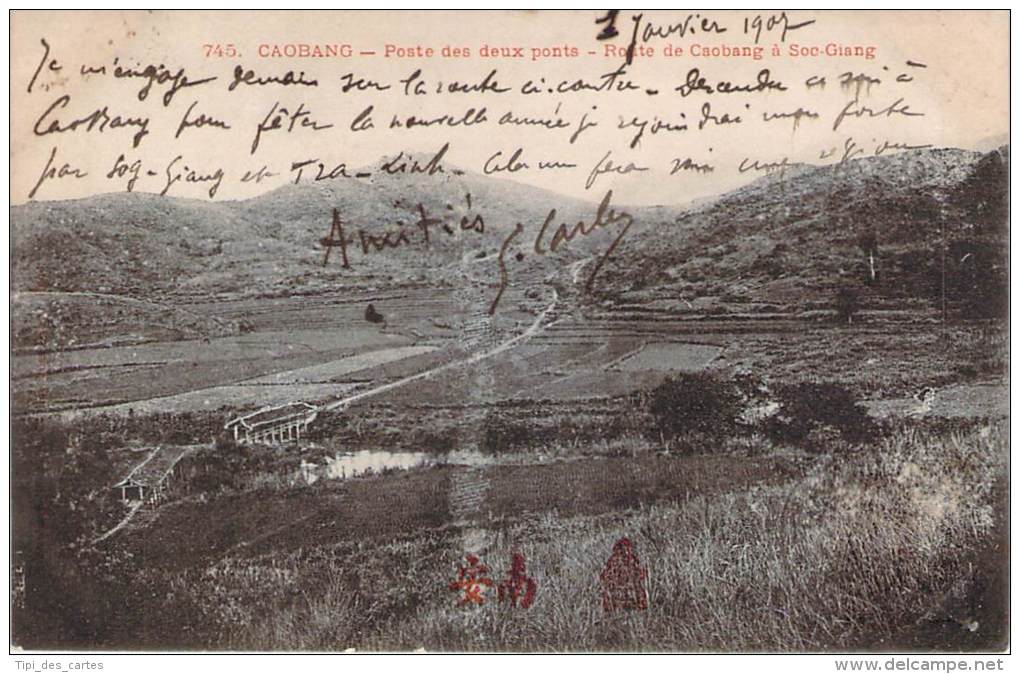 2 Janvier 1907
745. CAOBANG — Poste des deux ponts – Route de Caobang à Soc-Giang
Je m'engage demain sur la route ci-contre – Descendu ici à
CaoBang pour fêter la nouvelle année je rejoindrai mon poste
par Sog-Giang et Tra-Linh – Cela me fera une région
Amitiés
安南
Tipi_des_cartes www.delcampe.net